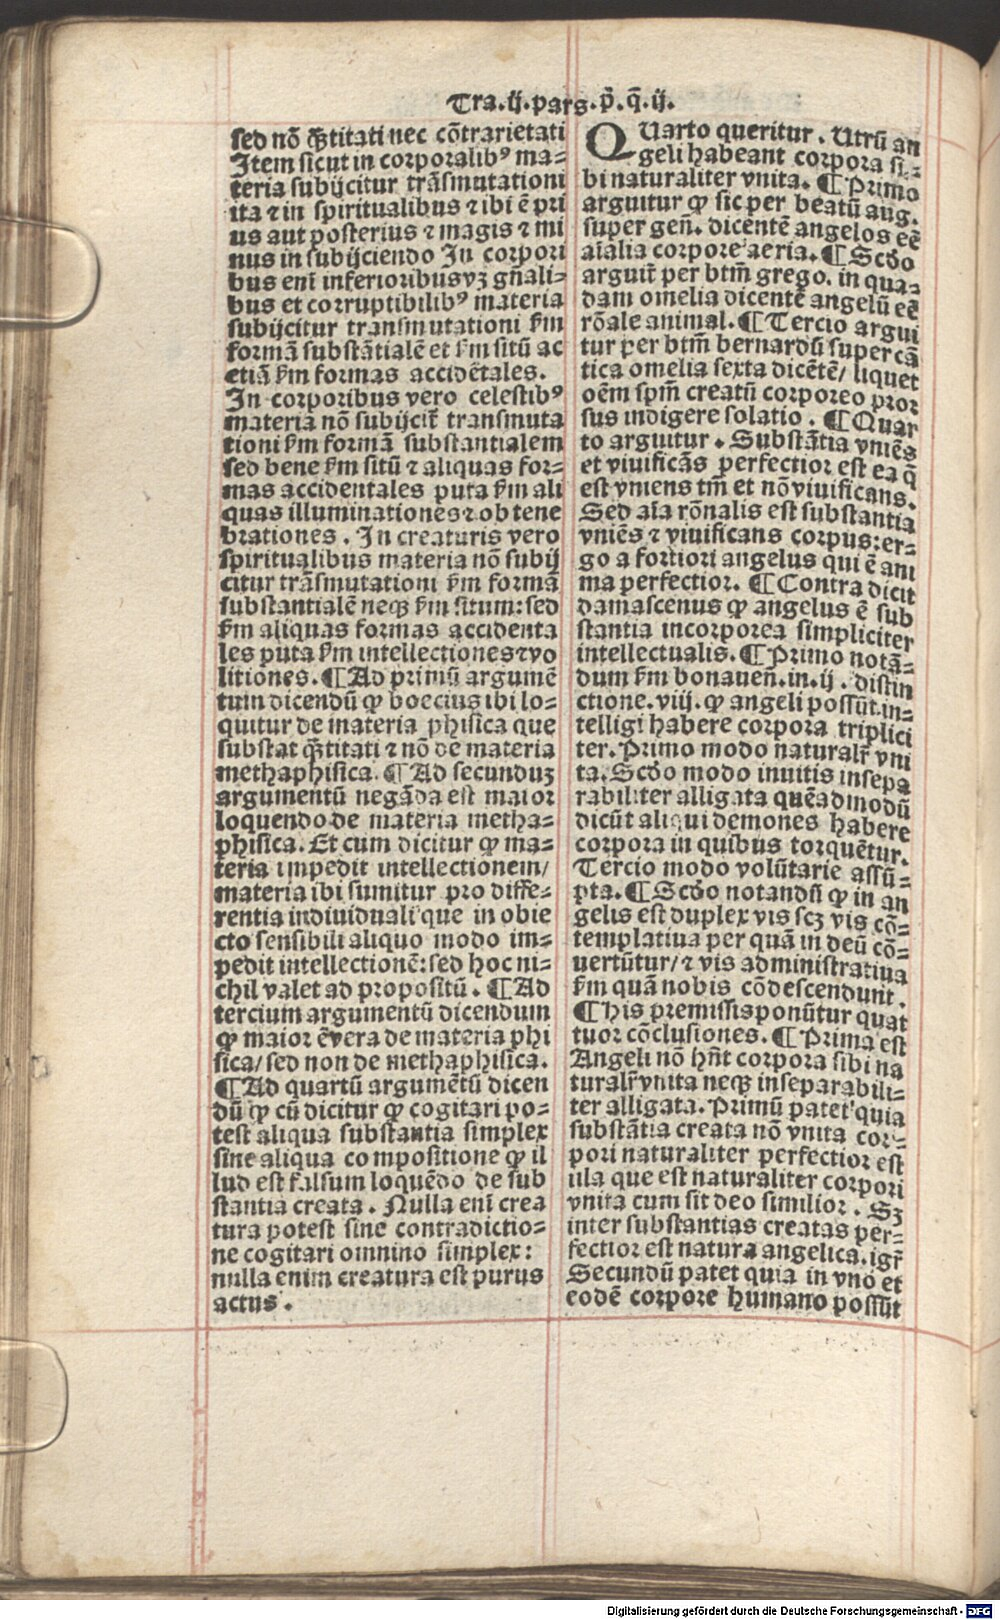 Tra.ij.pars.p̄.q̄.ij.
sed nō q̄ꝫtitati nec cōtrarietati
Item sicut in corporalibꝰ ma-
teria subijcitur trāsmutationi
ita ⁊ in spiritualibus ⁊ ibi ē pri
us aut posterius ⁊ magis ⁊ mi
nus in subijciendo In corpori
bus eni inferioribusvꝫ gn̄ali-
bus et corruptibilibꝰ materia
subijcitur transmutationi ẜm
formā substātialē et ẜm sitū ac
etiā ẜm formas accidētales.
In corporibus vero celestibꝰ
materia nō subijcit̄ transmuta
tioni ẜm formā substantialem
sed bene ẜm sitū ⁊ aliquas for-
mas accidentales puta ẜm ali
quas illuminationes⁊ob tene
brationes. In creaturis vero
spiritualibus materia nō subij
citur trāsmutationi ẜm formā
substantialē neqꝫ ẜm situm: sed
ẜm aliquas formas accidenta
les puta ẜm intellectiones⁊vo
litiones. ¶Ad primū argumē
tum dicendū ꝙ boecius ibi lo-
quitur de materia phisica que
substat q̄ꝫtitati ⁊ nō de materia
methaphisica. ¶Ad secunduꝫ
argumentū negāda est maior
loquendo de materia metha-
phisica. Et cum dicitur ꝙ ma-
teria impedit intellectionem/
materia ibi sumitur pro diffe-
rentia indiuiduali que in obie
cto sensibili aliquo modo im-
pedit intellectionē: sed hoc ni-
chil valet ad propositū. ¶Ad
tercium argumentū dicendum
ꝙ maior ē vera de materia phi
sica/ sed non de methaphisica.
¶Ad quartū argumētū dicen
dū ꝙ cū dicitur ꝙ cogitari po-
test aliqua substantia simplex
sine aliqua compositione ꝙ il
lud est falsum loquēdo de sub
stantia creata. Nulla eni crea
tura potest sine contradictio-
ne cogitari omnino simplex:
nulla enim creatura est purus
actus.
QUarto queritur. Utrū an
geli habeant corpora si-
bi naturaliter vnita. ¶Primo
arguitur ꝙ sic per beatū aug.
super gen̄. dicentē angelos eē
aīalia corpore aeria. ¶Scd̄o
arguit̄ per btm̄ grego. in qua-
dam omelia dicentē angelū eē
rōale animal. ¶Tercio argui
tur per btm̄ bernardū super cā
tica omelia sexta dicētē/ liquet
oēm spm̄ creatū corporeo pror
sus indigere solatio. ¶Quar
to arguitur. Substātia vniēs
et viuificās perfectior est ea q̄
est vniens tm̄ et nō viuificans.
Sed aīa rōnalis est substantia
vniēs ⁊ viuificans corpus: er-
go a fortiori angelus qui ē ani
ma perfectior. ¶Contra dicit
damascenus ꝙ angelus ē sub
stantia incorporea simpliciter
intellectualis. ¶Primo notā-
dum ẜm bonauen̄.in.ij. distin
ctione. viij. ꝙ angeli possūt.in-
telligi habere corpora triplici
ter. Primo modo naturalr̄ vni
ta. Scd̄o modo inuitis insepa
rabiliter alligata quēadmodū
dicūt aliqui demones habere
corpora in quibus torquētur.
Tercio modo volūtarie assū-
pta. ¶Scd̄o notandū ꝙ in an
gelis est duplex vis scꝫ vis cō-
templatiua per quā in deū cō-
uertūtur/ ⁊ vis administratiua
ẜm quā nobis cōdescendunt.
¶His premissis ponūtur quat
tuor cōclusiones. ¶Prima est
Angeli nō hn̄t corpora sibi na
turalr̄ vnita neqꝫ inseparabili-
ter alligata. Primū patet quia
substātia creata nō vnita cor-
pori naturaliter perfectior est
illa que est naturaliter corpori
vnita cum sit deo similior. Sꝫ
inter substantias creatas per-
fectior est natura angelica. igr̄
Secundū patet quia in vno et
eodē corpore humano possūt
Digitalisierung gefördert durch die Deutsche Forschungsgemeinschaft - DFG